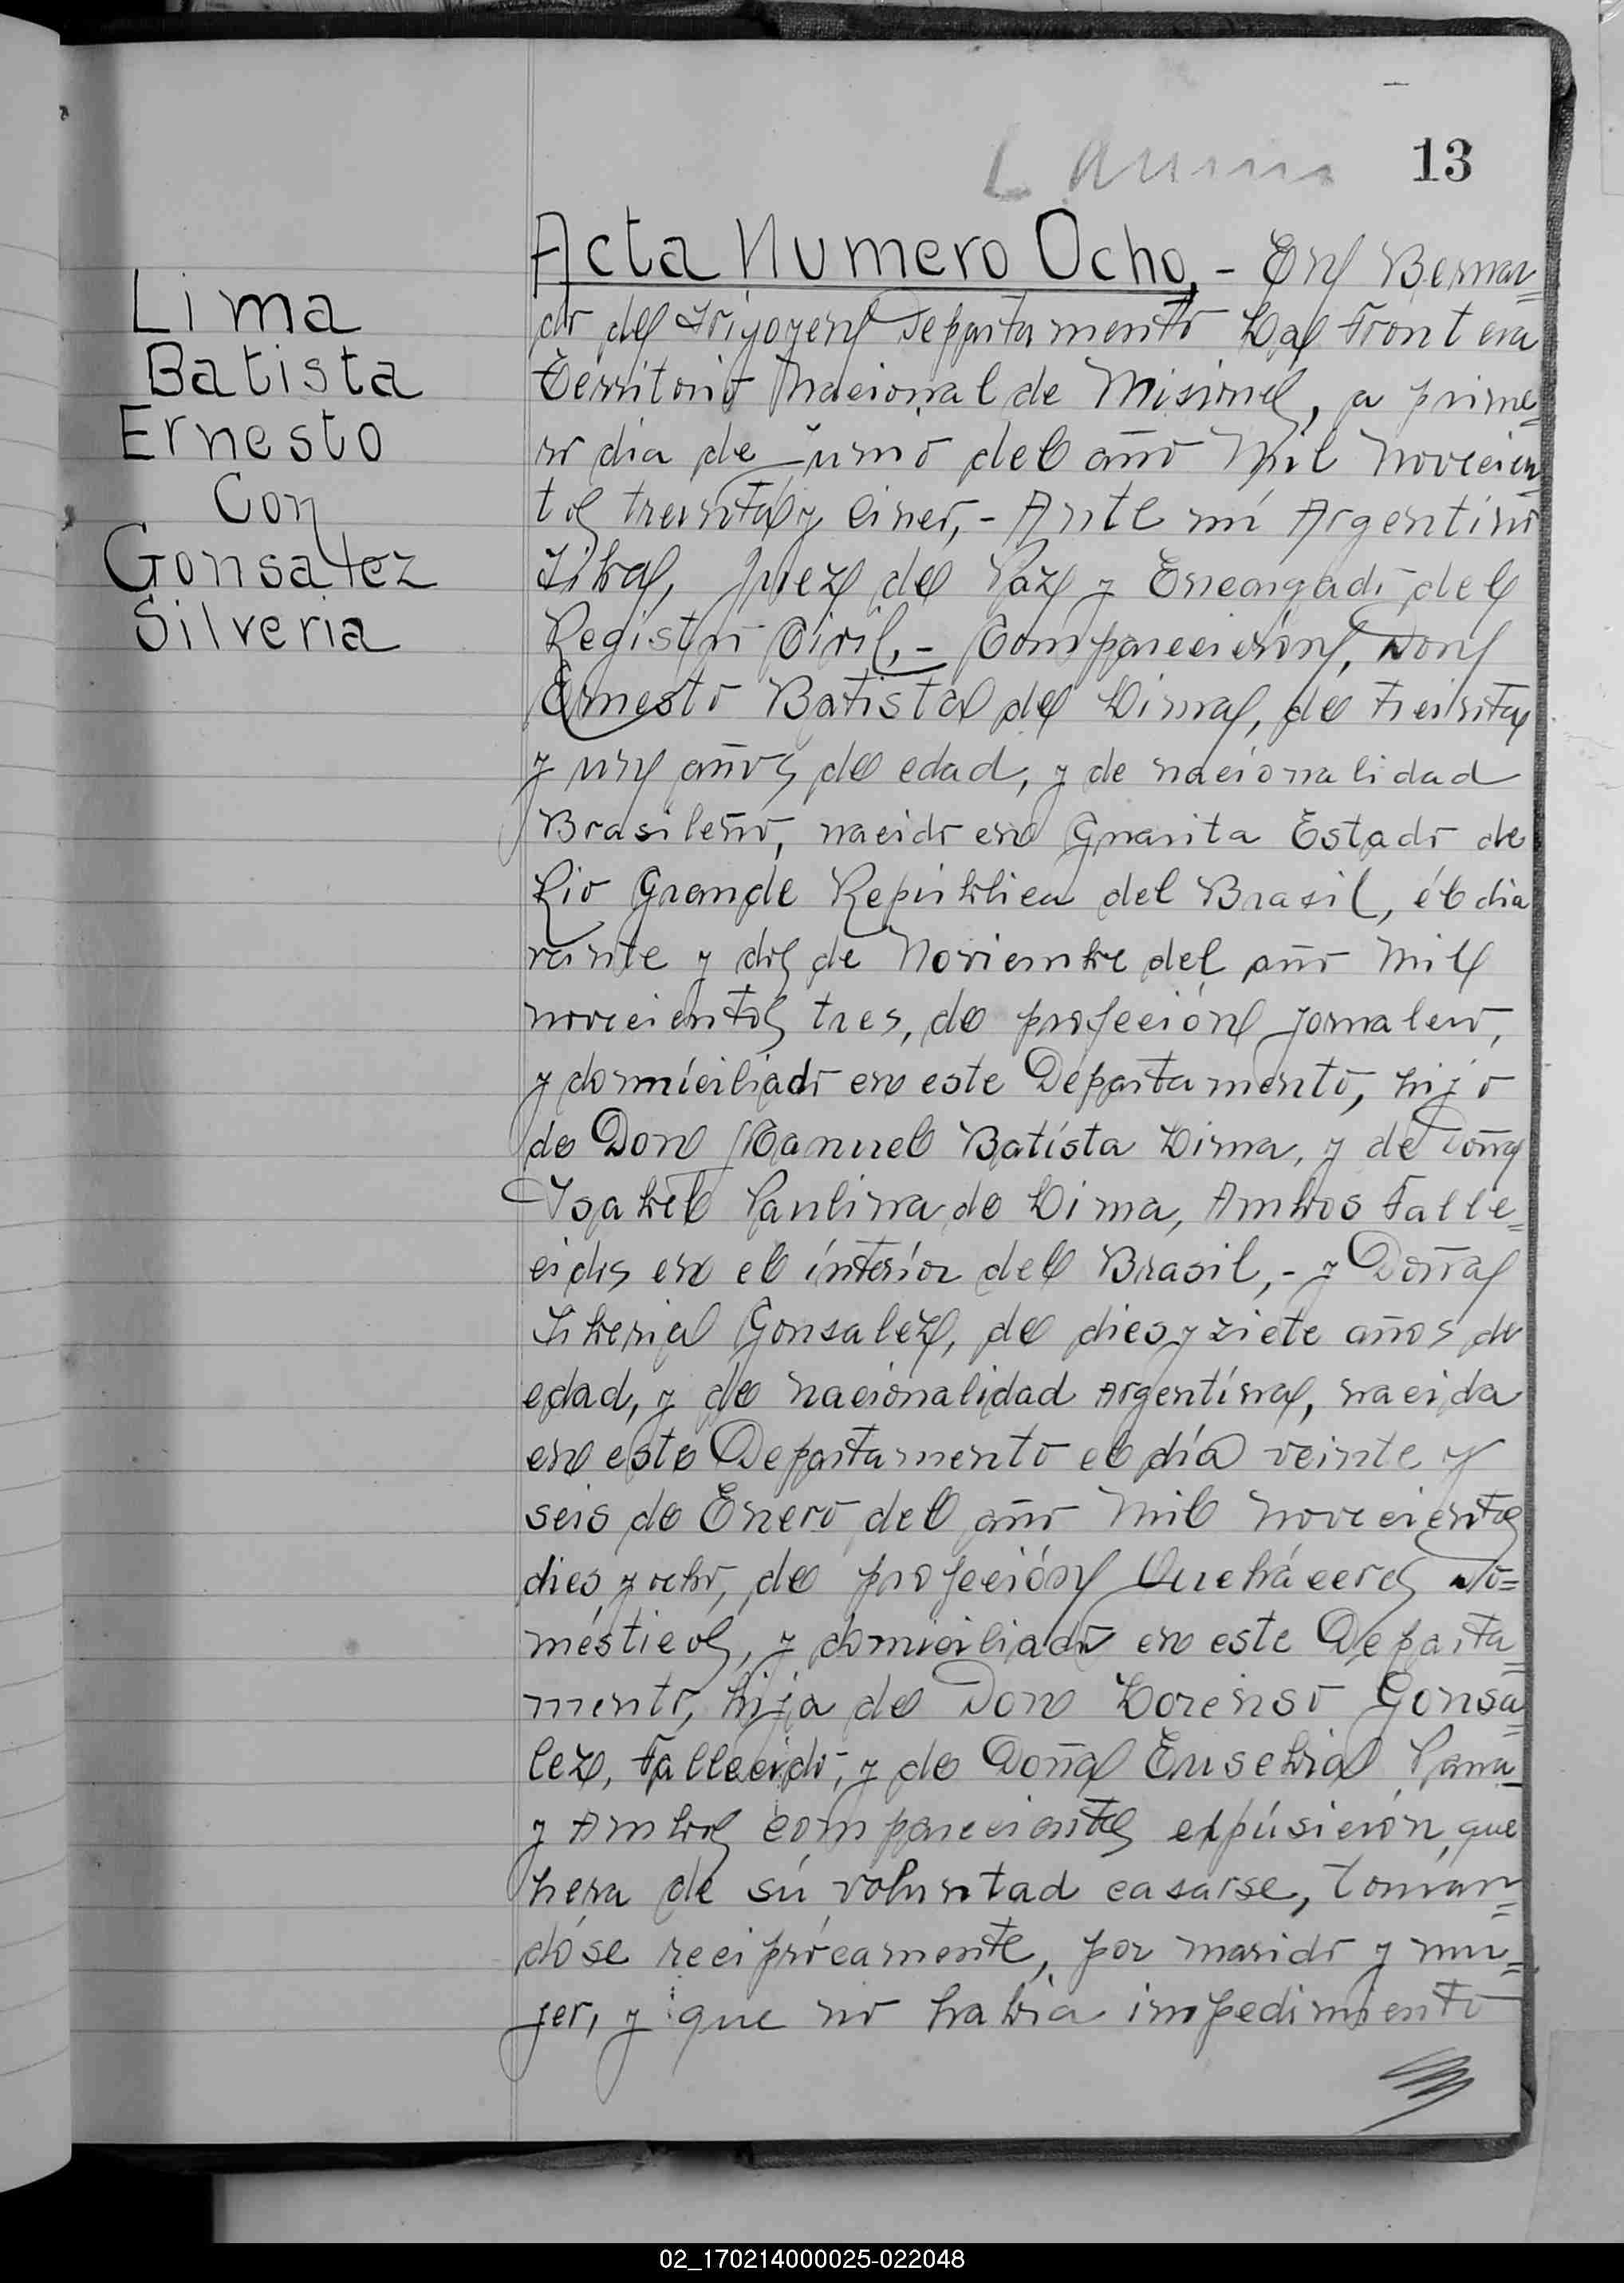 13
Lima
Batista
Ernesto
Con
Gonsalez
Silveria
Acta Numero Ocho, - En Bernar=
do de Irigoyen Departamento La Frontera
Territorio Nacional de Misiones, a prime=
ro dia de Junio del año Mil Novecien=
tos treinta y cinco, - Ante mí Argentino
Juez de Paz y Encargado del
Registro Civil, - Comparecieron, Don
Ernesto Batista de Lima, de treinta
y un años de edad, y de nacionalidad
Brasileño, nacido en Guarita Estado de
Rio Grande Republica del Brasil, él dia
veinte y dos de Noviembre del año Mil
novecientos tres, de profeción jornalero,
y domiciliado en este Departamento, hijo
de Don Manuel Batista Lima, y de Doña
Isabel Paulina de Lima, Ambos Falle=
cidos en el interior del Brasil, - y Doña
Silveria Gonsalez, de dies y ziete años de
edad, y de nacionalidad Argentina, nacida
en este Departamento el día veinte y
seis de Enero del año Mil novecientos
dies y ocho, de profeción Queháceres Do=
mésticos, y domiciliado en este Departa=
mento, hija de Don Lorenso Gonsa=
lez, Fallecido, y de Doña Eusebia
y Ambos comparecientes expúsieron, que
hera de sú voluntad casarse, tomán=
dose reciprócamente, por marido y mu=
jer, y que no habia impedimiento
02_170214000025-022048